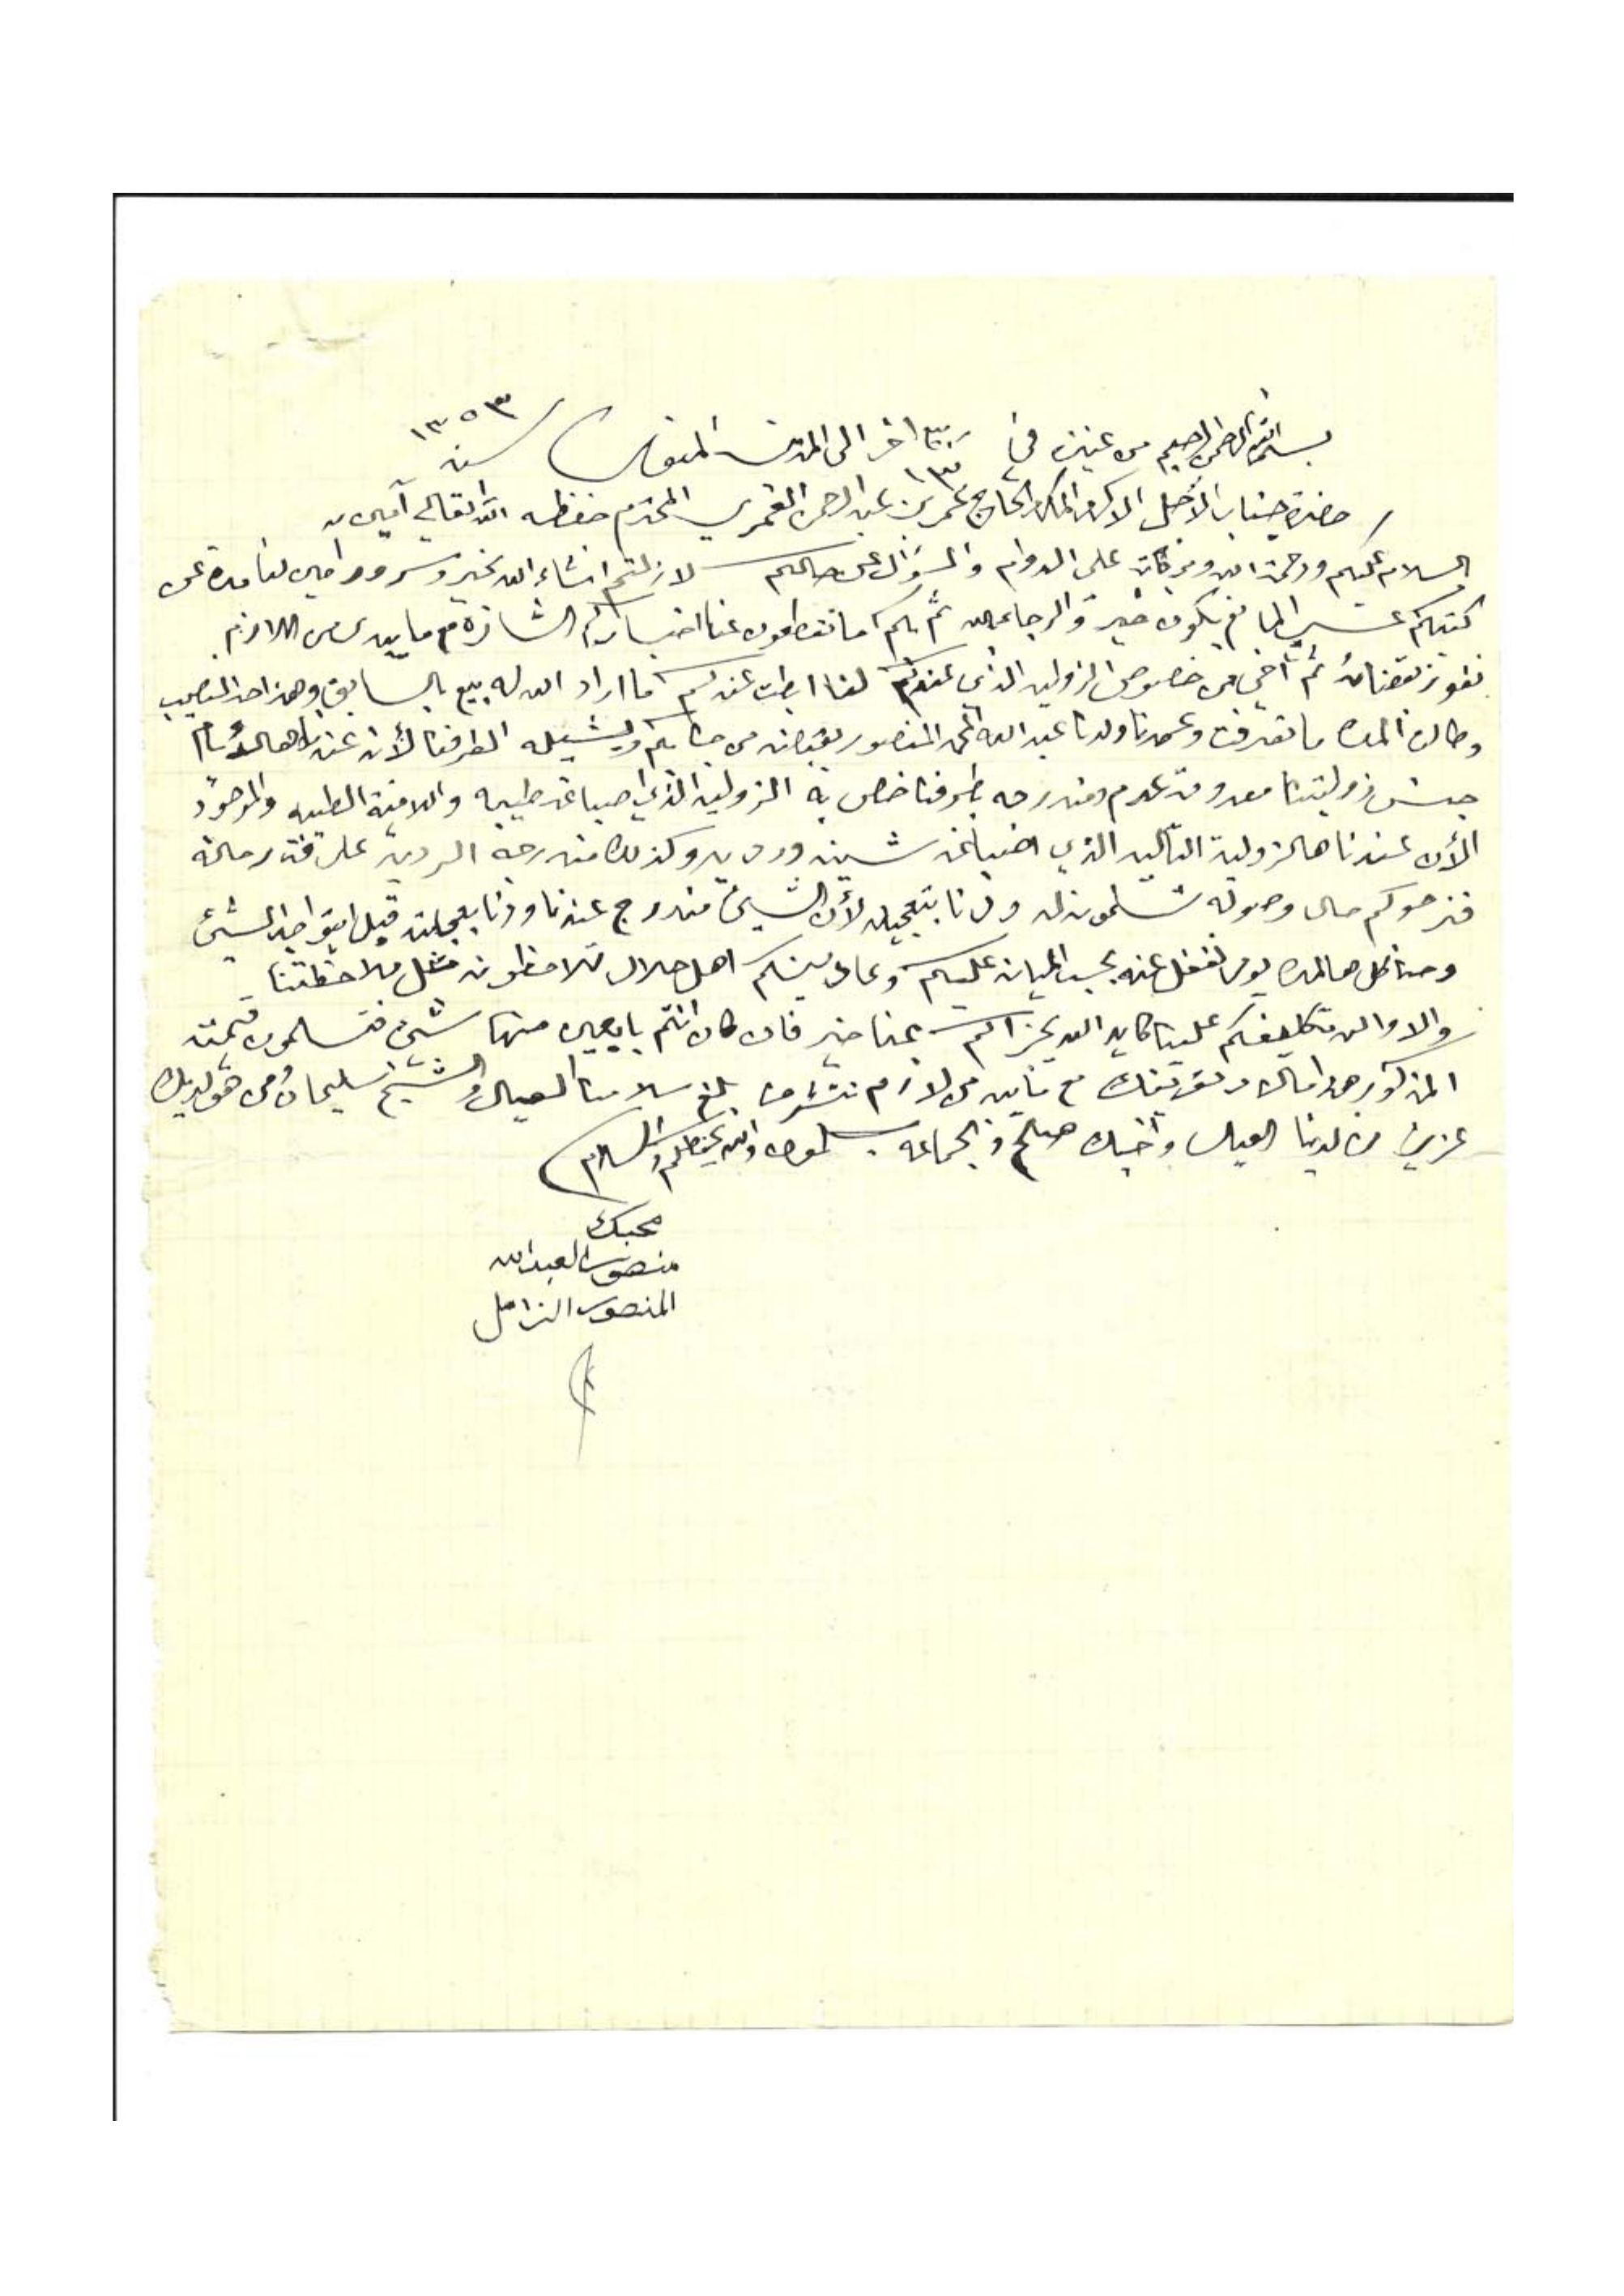 بسم الله الرحمن الرحيم من عنيزة في ١٣ اخر الى المدينة المنورة سنة ١٣٥٣
حضرة جناب الأجل الاكرم المكرم الحاج عمر بن عبد الرحمن العمري المحترم حفظه الله تعالى آمين
السلام عليكم ورحمة الله وبركاته على الدوام والسؤال عن حالكم لازلتم انشاء الله بخير وسرور امين لنا مدة عن
كتبكم عسى المانع يكون خير والرجا بالله ثم بكم ما تقطعون عنا اخباركم السارة مع ما يبدى من اللازم
نفوز بقضائه ثم أخي من خصوص الزوليه الذي عندكم لنا ابطت عندكم ما اراد الله له بيع بالسابق وهذا حد النصيب
وطالت المده ما تصرفت وعمدنا ولدنا عبد الله المحمد المنصور يقبضه من جنابكم ويشيله الطرفنا لأن عندنا هالأيام
جنس زوليتنا معدومة عدم ومندرجه بطرفنا خص به الزوليه الذي اصباغه طيبه واللامنة الطيبه والموجود
الأن عندنا هالزولية التاليه الذي اصباغه شينه ورديه وكذلك مندرجه الرديه على قدر حاله
فنرجوكم حال وصوله تسلمونه له ودنا بتعجيله لأن الشيئ مندرج عندنا ودنا بعجلته قبل يتواجد الشيئ
وحنا كل هالمده يوم نغفل عنه بحسب الميانه عليكم وعارفينكم اهل حلال تلاحظونه مثل ملاحظتنا
والا والله تكليفكم علينا كايد الله يجزاكم عنا خير فان كان انتم بايعين منها شيئ فتسلمون قيمته
المذكور هذا مالزم تعريفك مع ما يبدى من لازم نتشرف بلغ سلامنا العيال والشيخ سليمان ومن هو لديك
عزيز من لدينا العيال وأخيك صالح والجماعه يسلمون والله يحفظكم والسلام
محبك
منصور العبدالله
المنصور الزامل